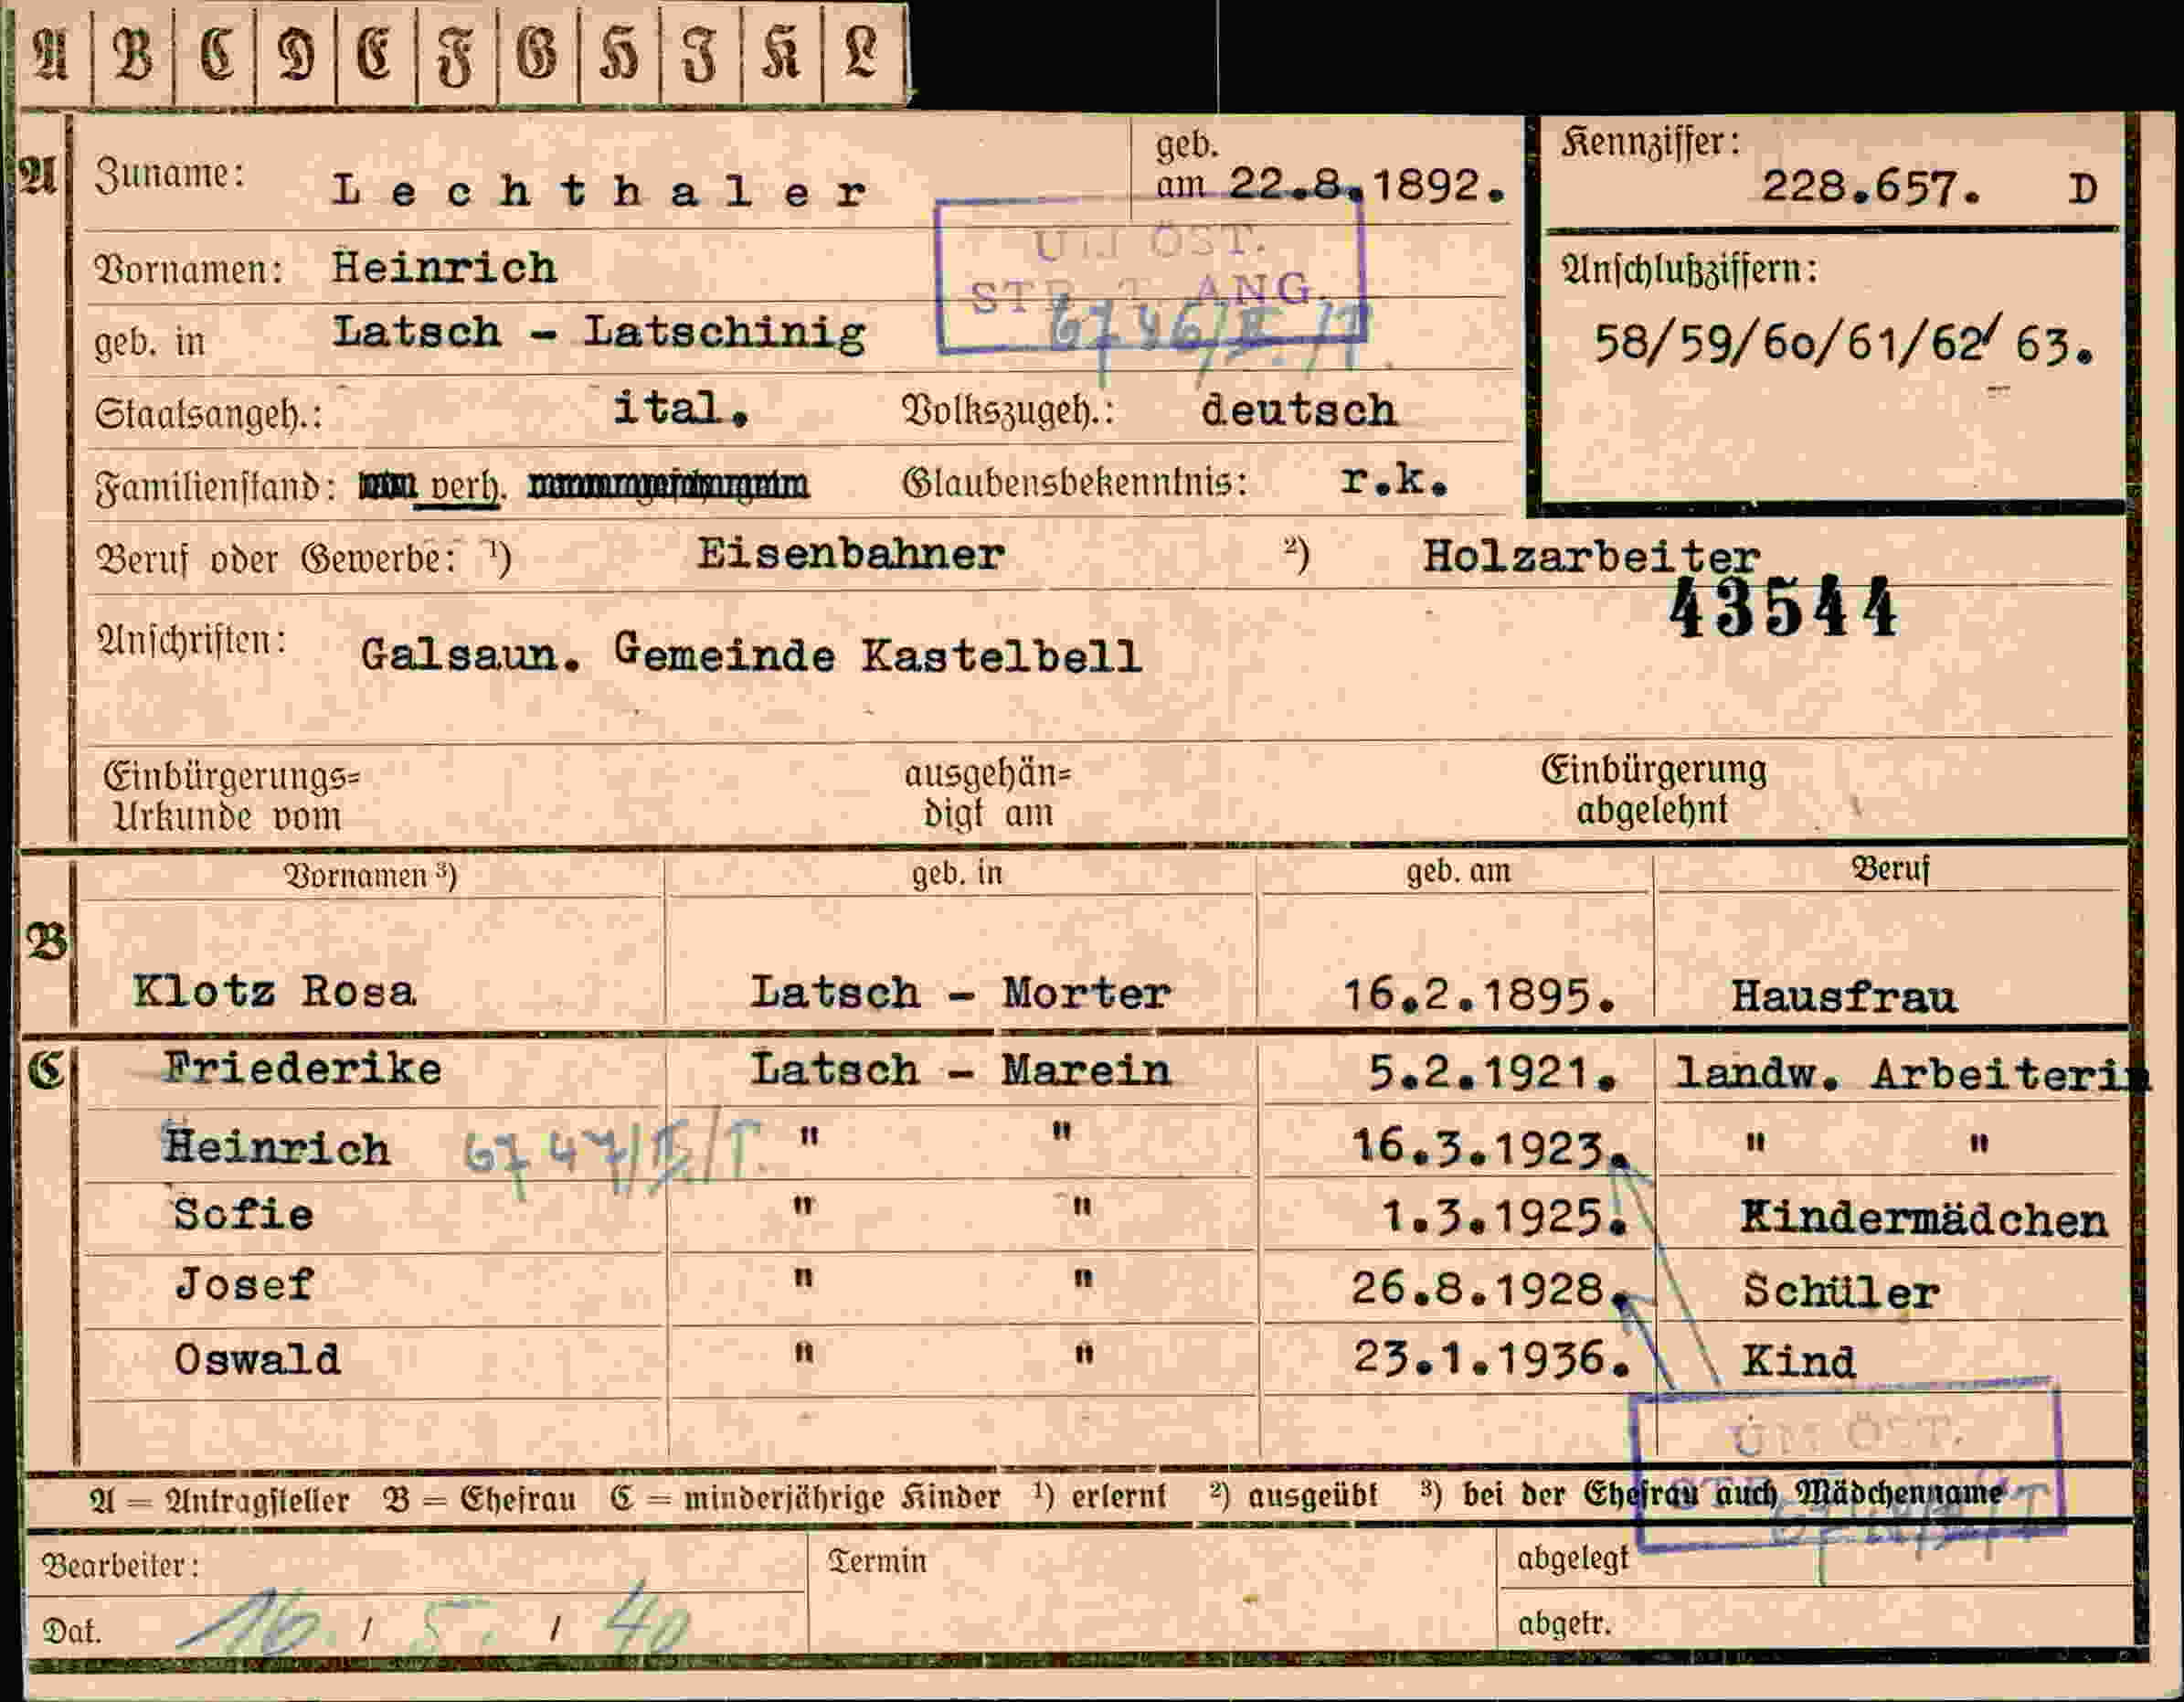 A B C D E F G H I K L
A Zuname: Lechthaler geb. am 22.8.1892. Kennziffer: 228.657. D
Vornamen: Heinrich
ÖST.
ANG.
6746/II/T
Anschlußziffern:
geb. in Latsch - Latschinig
58/59/60/61/62/ 63.
Staatsangeh.: ital. Volkszugeh.: deutsch
Familienstand: verh. Glaubensbekenntnis: r.k.
Beruf oder Gewerbe: 1) Eisenbahner 2) Holzarbeiter
43544
Anschriften: Galsaun. Gemeinde Kastelbell
Einbürgerungs= ausgehän= Einbürgerung
Urkunde vom digt am abgelehnt
Vornamen 3) geb. in geb. am Beruf
B Klotz Rosa Latsch - Morter 16.2.1895. Hausfrau
C Friederike Latsch - Marein 5.2.1921. landw. Arbeiterin
Heinrich 6747/II/T. " " 16.3.1923. " "
Sofie " " 1.3.1925. Kindermädchen
Josef " " 26.8.1928. Schüler
Oswald " " 23.1.1936. Kind
ÖST.
A = Antragsteller B = Ehefrau C = minderjährige Kinder 1) erlernt 2) ausgeübt 3) bei der Ehefrau auch Mädchenname
Bearbeiter: Termin abgelegt
Dat. 16. / 5. / 40 abgetr.